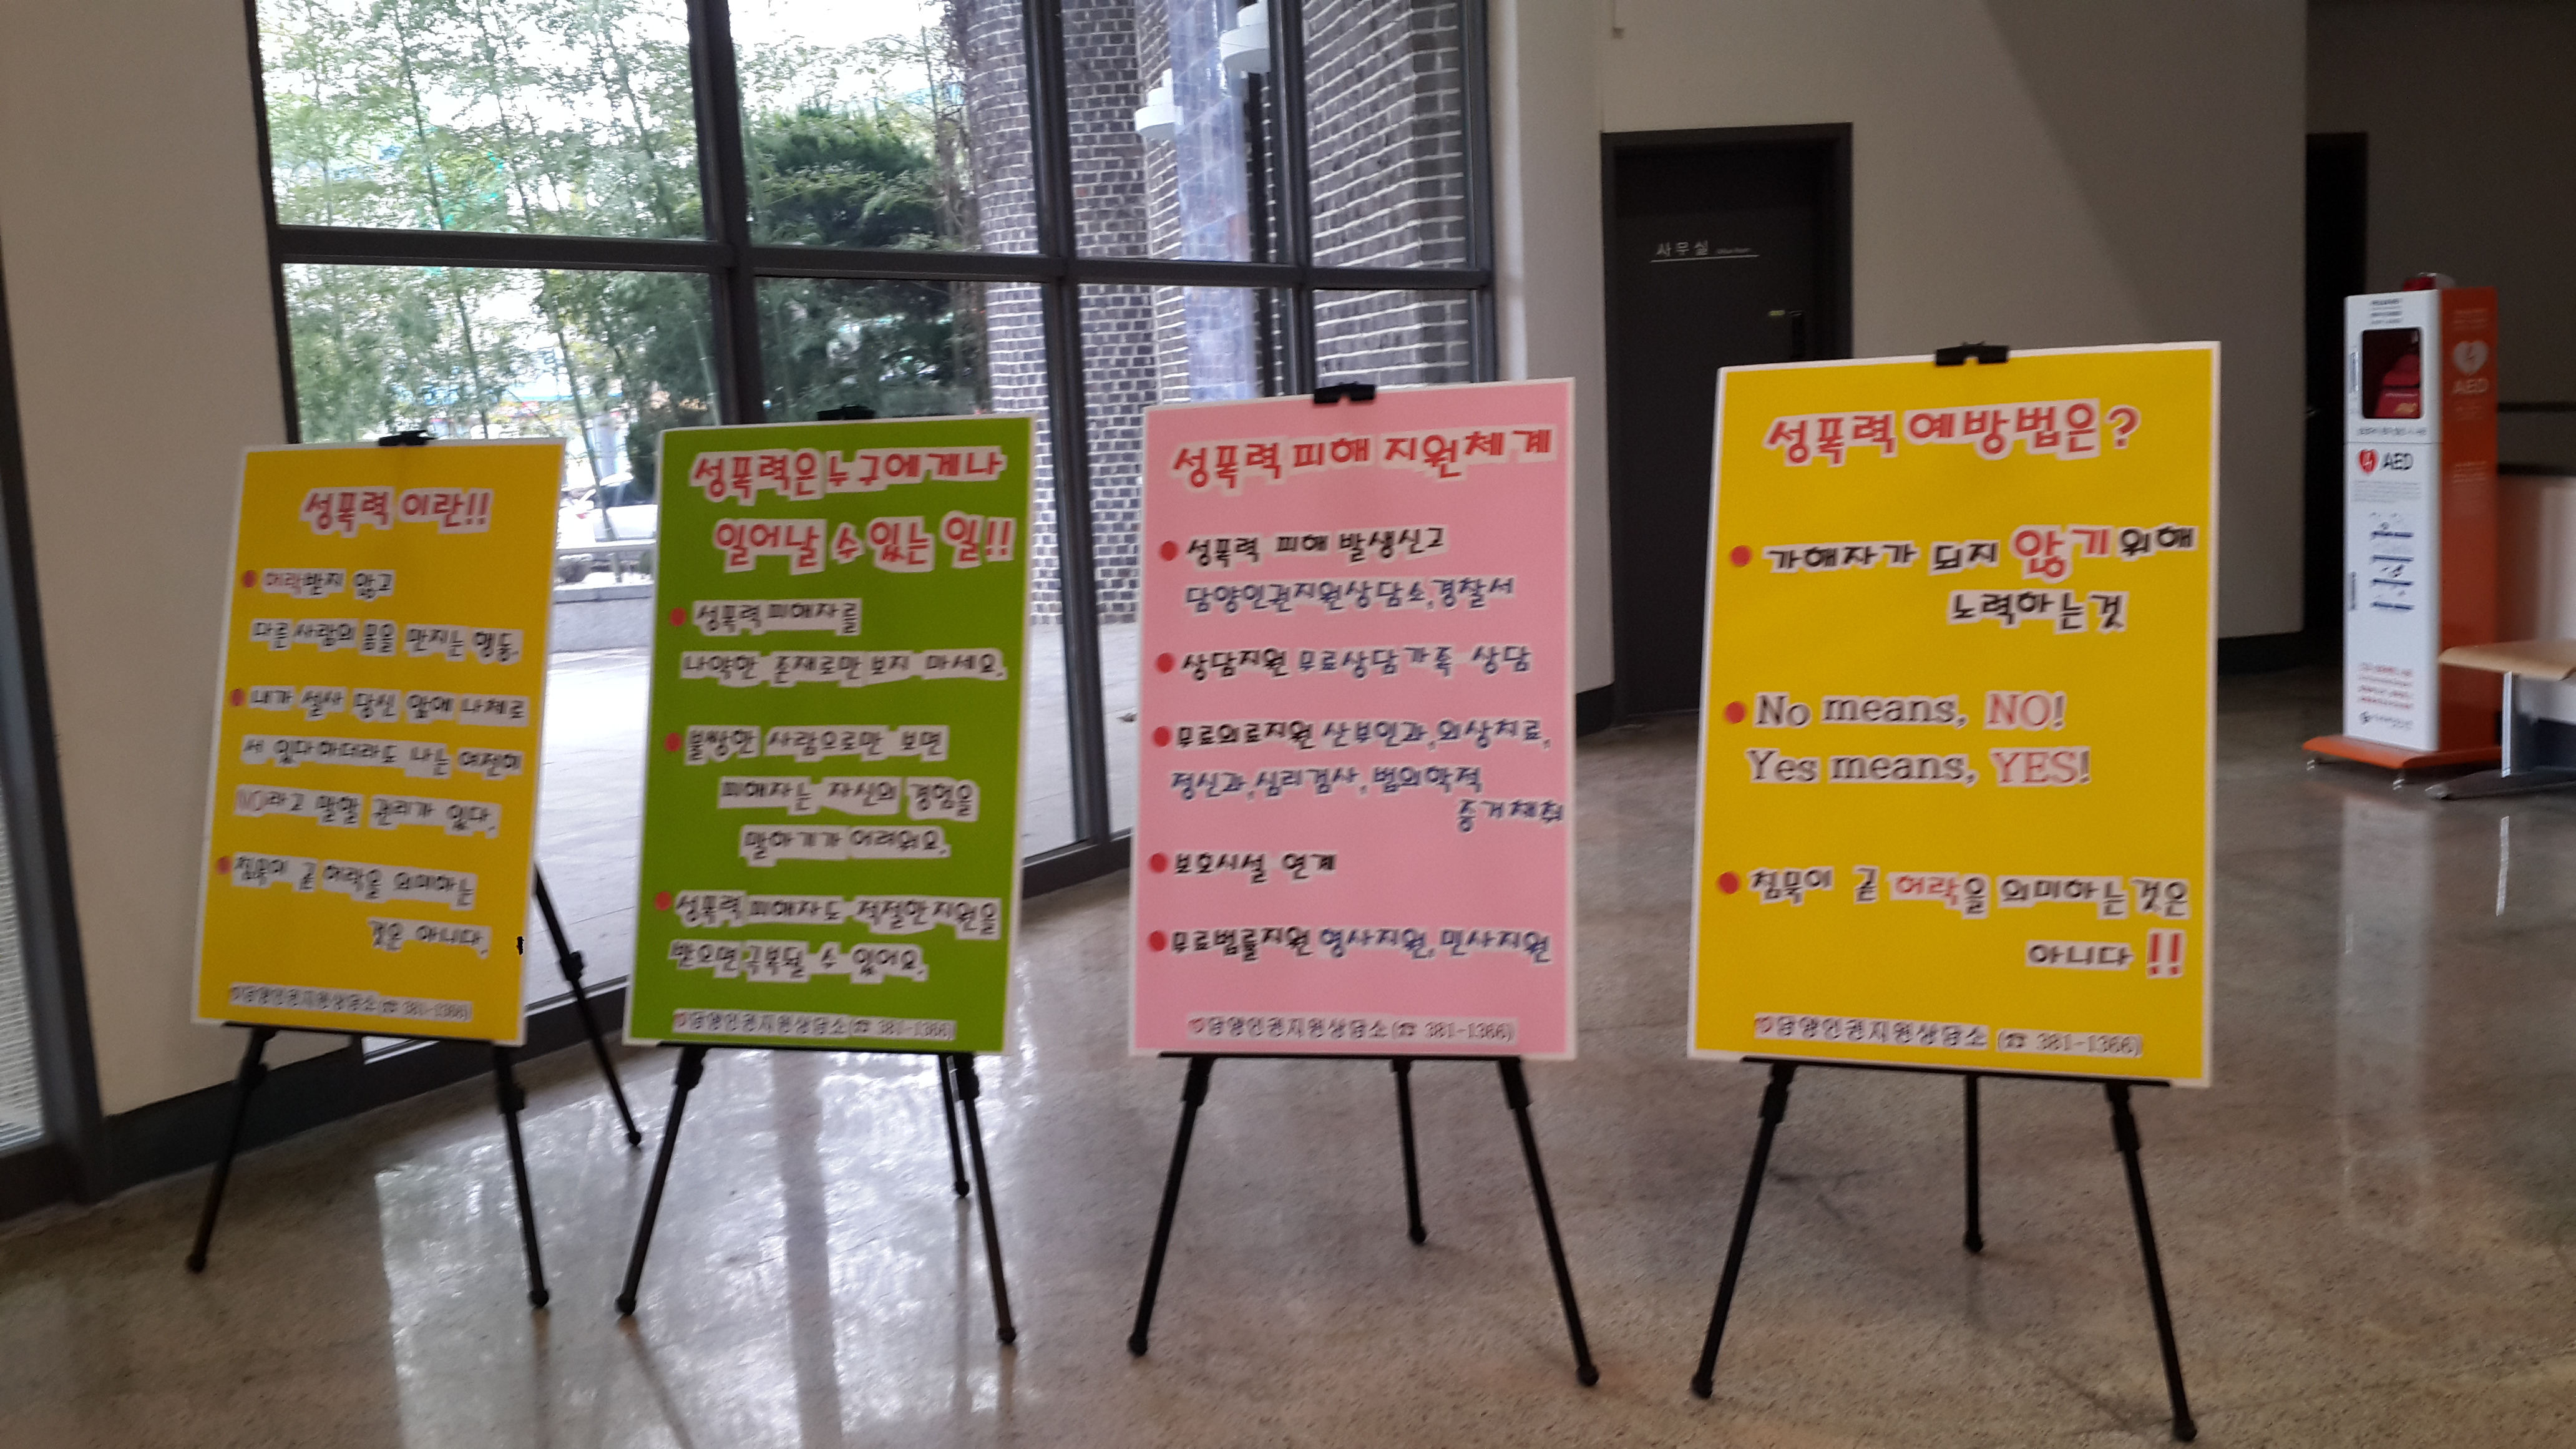 성폭력 이란!!
허락받지 않고
다른 사람의 몸을 만지는 행동.
내가 설사 당신 앞에 나체로
서 있다하더라도 나는 여전히
NO라고 말할 권리가 있다.
침묵이 곧 허락을 의미하는
것은 아니다.
담양인권지원상담소(☎ 381-1366)
성폭력은 누구에게나
일어날 수 있는 일!!
성폭력 피해자를
나약한 존재로만 보지 마세요.
불쌍한 사람으로만 보면
피해자는 자신의 경험을
말하기가 어려워요.
성폭력 피해자도 적절한 지원을
받으면 극복될 수 있어요.
담양인권지원상담소(☎ 381-1366)
성폭력 피해 지원체계
성폭력 피해 발생신고
담양인권지원상담소,경찰서
상담지원 무료상담가족 상담
무료의료지원 산부인과,외상치료,
정신과,심리검사,법의학적
증거채취
보호시설 연계
무료법률지원 형사지원,민사지원
담양인권지원상담소(☎ 381-1366)
성폭력 예방법은?
가해자가 되지 않기위해
노력하는것
No means, NO!
Yes means, YES!
침묵이 곧 허락을 의미하는것은
아니다!!
담양인권지원상담소 (☎ 381-1366)
사무실
AED
AED